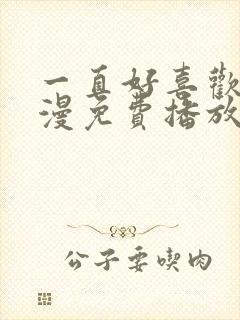 一直好喜歡
漫免費播放
公子要喫肉